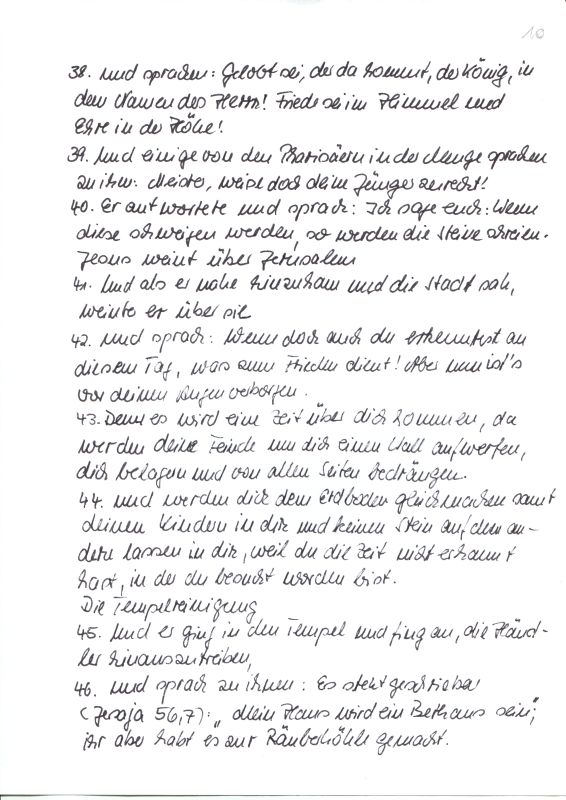 10
38. und sprachen: Gelobt sei, der da kommt, der König, in
dem Namen des Herrn! Friede sei im Himmel und
Ehre in der Höhe!
39. Und einige von den Pharisäern in der Menge sprachen
zu ihm: Meister, weise doch deine Jünger zurecht!
40. Er antwortete und sprach: Ich sage euch: Wenn
diese schweigen werden, so werden die Steine schreien.
Jesus weint über Jerusalem
41. Und als er nahe hinzukam und die Stadt sah,
weinte er über sie
42. und sprach: Wenn doch auch du erkenntest an
diesem Tag, was zum Frieden dient! Aber nun ist's
vor deinen Augen verborgen.
43. Denn es wird eine Zeit über dich kommen, da
werden deine Feinde um dich einen Wall aufwerfen,
dich belagern und von allen Seiten bedrängen.
44. und werden dich dem Erdboden gleichmachen samt
deinen Kindern in dir und keinen Stein auf dem an-
dern lassen in dir, weil du die Zeit nicht erkannt
hast, in der du besucht worden bist.
Die Tempelreinigung
45. Und er ging in den Tempel und fing an, die Händ-
ler hinauszutreiben,
46. und sprach zu ihnen: Es steht geschrieben
(Jesaja 56,7): „Mein Haus wird ein Bethaus sein";
ihr aber habt es zur Räuberhöhle gemacht.